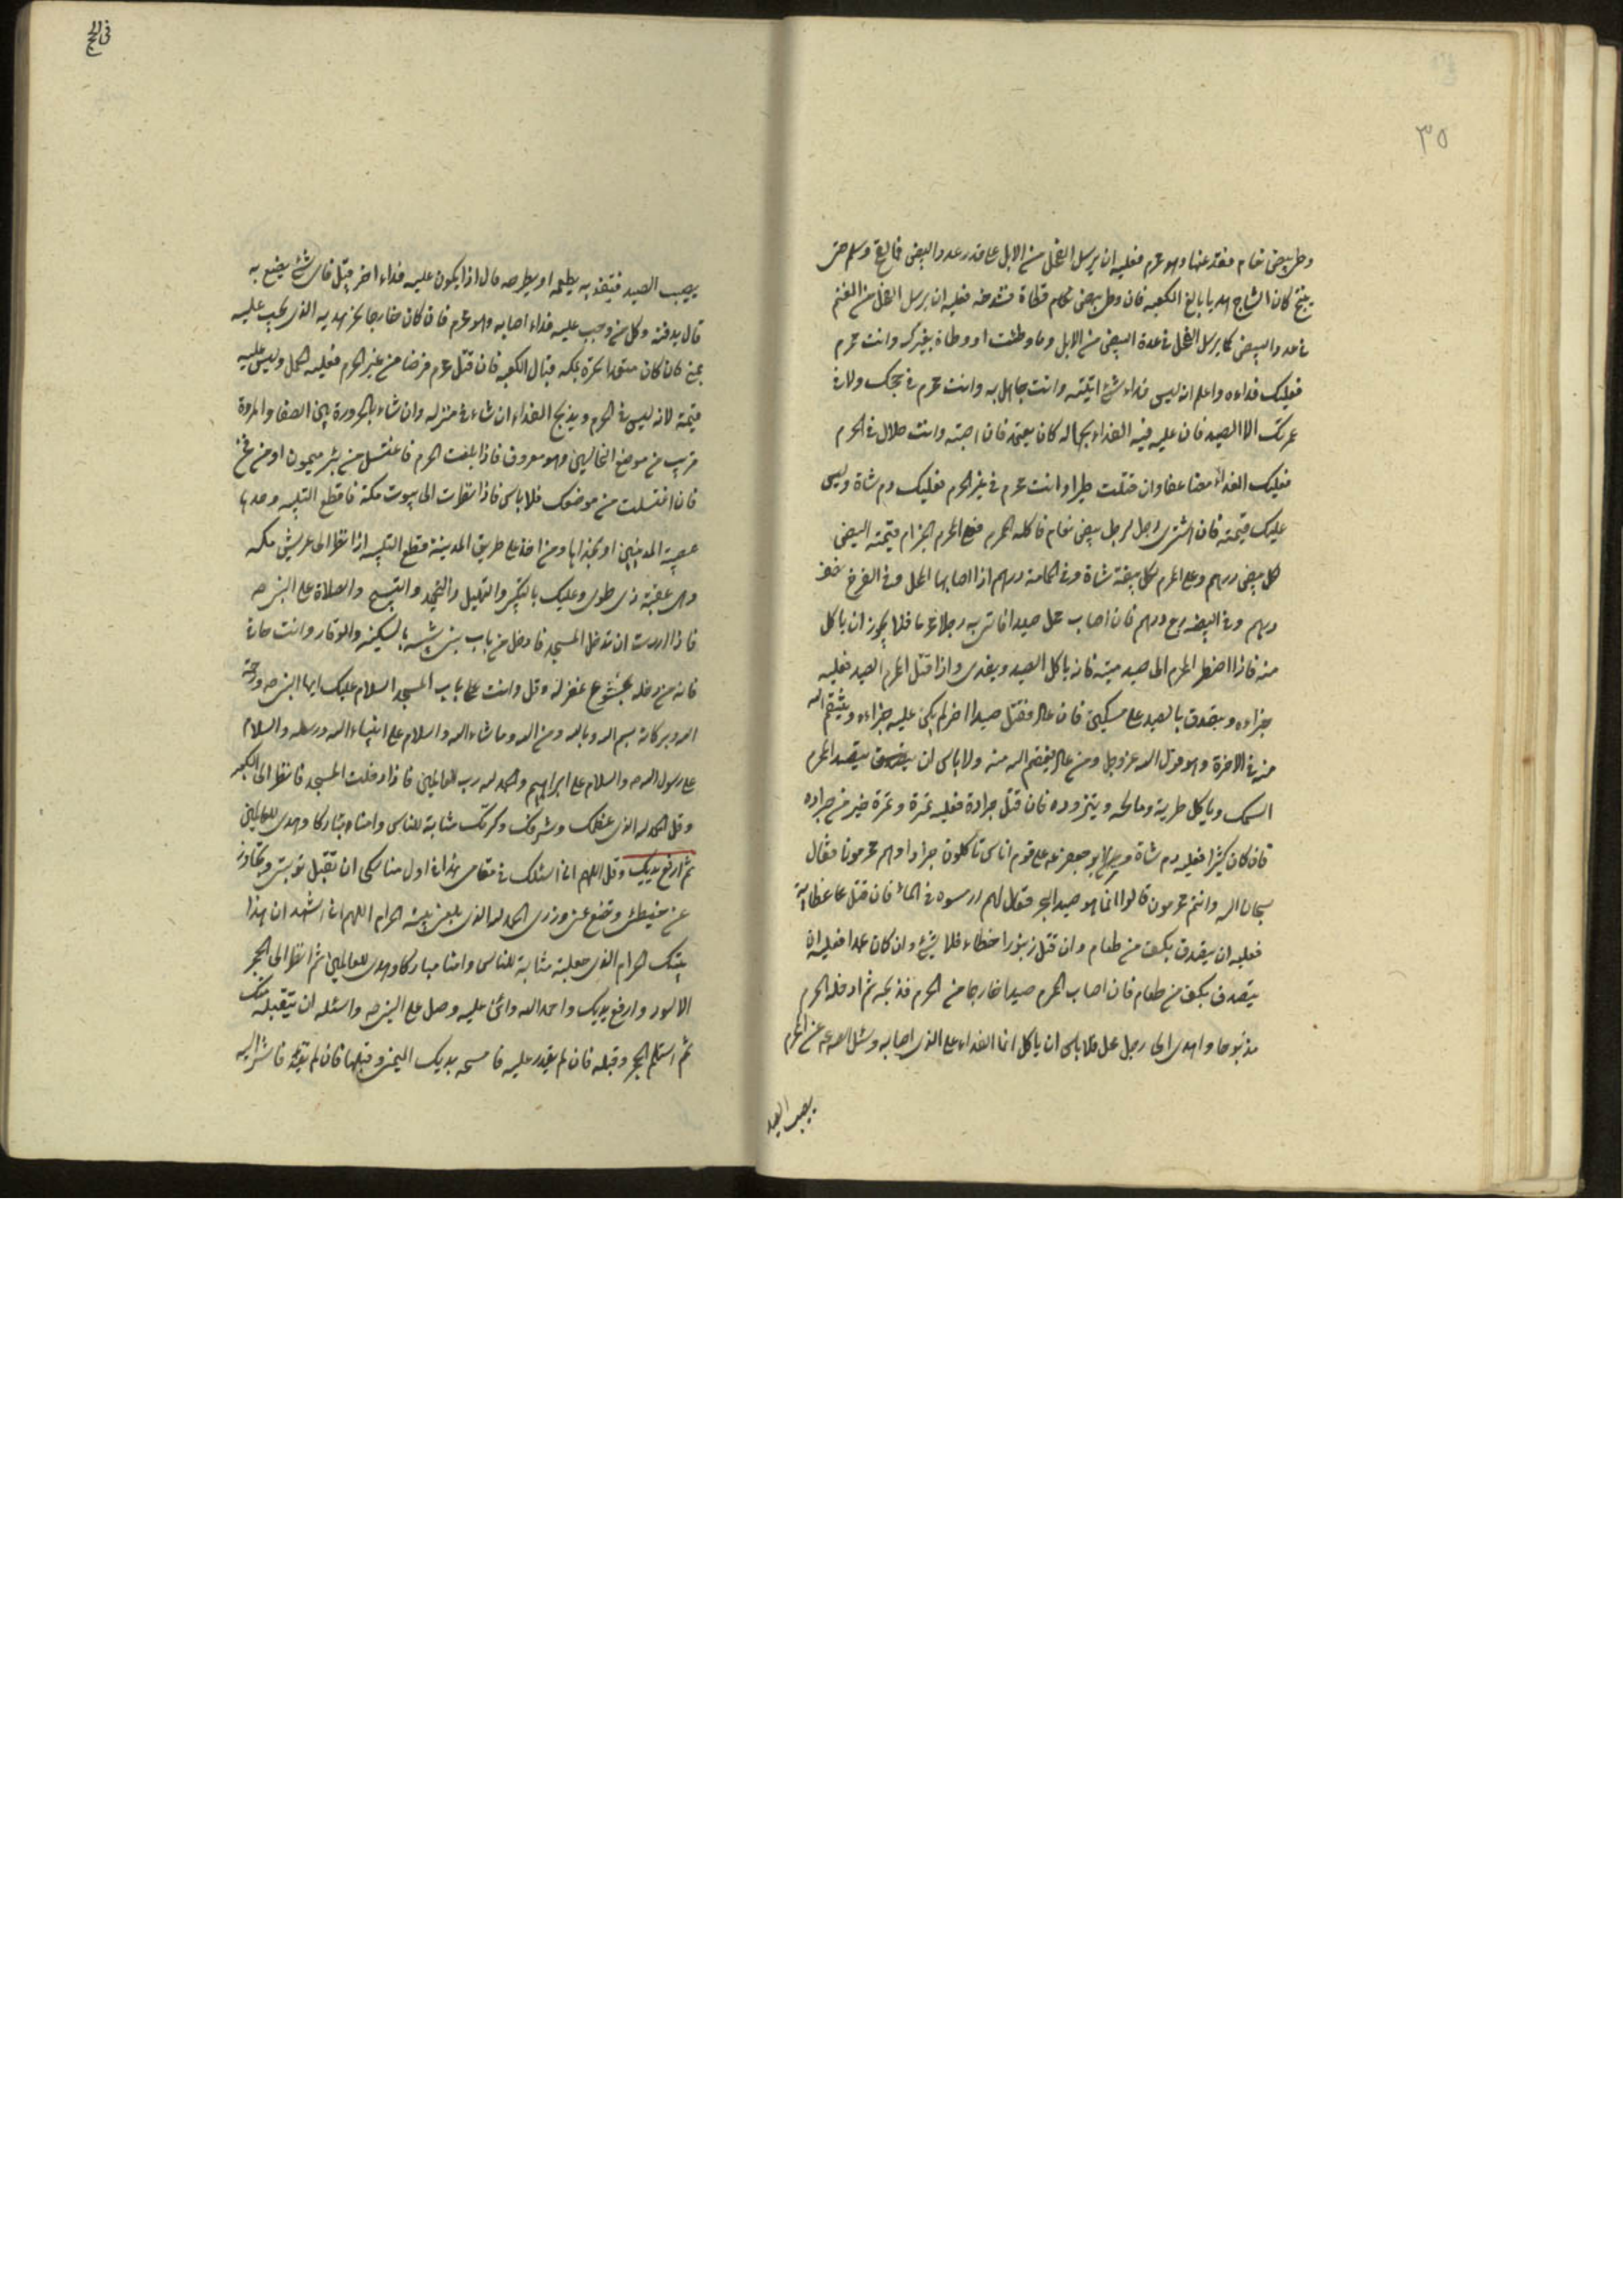 ٣٥
وطئ بيض نعام ففدغها وهو محرم فعليه ان يرسل الفحل من الابل على قدر عدد البيض فما لقح وسلم حتى
ينتج كان النتاج هديا بالغ الكعبه فان وطئ بيض قطاة فشدخه فعليه ان يرسل الفحل من الغنم
في عدد البيض كما يرسل الفحل في عدة البيض من الابل وما وطئت او وطاه بغيرك وانت محرم
فعليك فداءه واعلم انه ليس فداء شئ اتيته وانت جاهل به وانت محرم في حجك ولا في
عمرتك الا الصيد فان عليه فيه الفداء بجهاله كان بعمد فان اصبته وانت حلال في الحرم
فعليك الفداء مضاعفا وان قتلت طيرا وانت محرم في غير الحرم فعليك دم شاة وليس
عليك قيمته فان اشترى رجل لرجل بيض نعام فاكله المحرم فعلى المحرم الجزاء قيمته البيض
كل بيض درهم وعلى المحرم لكل بيضة شاة وفي الحمامة درهم اذا اصابها المحل وفي الفرخ نصف
درهم وفي البيضه ربع درهم فان اصاب محل صيدا فاتى به رجلا محرما فلا يجوز ان ياكل
منه فاذا اضطر المحرم الى صيد وميتة فانه ياكل الصيد ويفدى واذا قتل المحرم الصيد فعليه
جزاءه ويتصدق بالصيد على مسكين فان عاد فقتل صيدا اخر لم يكن عليه جزاءه وينتقم الله
منه في الاخرة وهو قول الله عز وجل ومن عاد فينتقم الله منه ولا باس ان يتصيد المحرم
السمك وياكل طريه ومالحه ويتزوده فان قتل جرادة فعليه تمرة وتمرة خير من جراده
فان كان كثيرا فعليه دم شاة ومر ابو جعفر عه على قوم اناس تاكلون جرادا وهم محرمون فقال
سبحان الله وانتم محرمون قالوا انما هو صيد البحر فقال لهم ارمسوه في الماء فان قتل عظاية
فعليه ان يتصدق بكف من طعام وان قتل زنبورا خطاء فلا شئ وان كان عمدا فعليه ان
يتصدق بكف من طعام فان اصاب المحرم صيدا خارجا من الحرم فذبحه ثم ادخله الحرم
مذبوحا واهدى الى رجل محل فلا باس ان ياكل انما الفداء على الذى اصابه وسئل الص عه عن المحرم
يصيب الصيد
يصيب الصيد فيفديه يطعمه او يطرحه قال اذا يكون عليه فداء اخر قيل فاى شئ يصنع به
قال يدفنه وكل من وجب عليه فداء اصابه وهو محرم فان كان حاجا نحر هديه الذى يجب عليه
بمنى فان كان معتمرا نحره بمكه قبال الكعبه فان قتل محرم فرخا من غير الحرم فعليه الحمل وليس عليه
قيمته لانه ليس في الحرم ويذبح الفداء ان شاء في منزله وان شاء بالحزورة بين الصفا والمروة
قريب من موضع النخاليين وهو معروف فاذا بلغت الحرم فاغتسل من بئر ميمون او من فخ
فان اغتسلت من موضعك فلا باس فاذا نظرت الى بيوت مكة فاقطع التلبيه وحدها
عقبة المدنيين او بحذاها ومن اخذ على طريق المدينة قطع التلبيه اذا نظر الى عريش مكه
وهى عقبة ذى طوى وعليك بالتكبير والتهليل والتحميد والتسبيح والصلاة على النبى ص
فاذا اردت ان تدخل المسجد فادخل من باب بنى شيبه بالسكينه والوقار وانت حاف
فانه من دخله بخشوع غفر له وقل وانت على باب المسجد السلام عليك ايها النبى ص ورحمة
الله وبركاته بسم الله وبالله ومن الله وما شاء الله والسلام على انبياء الله ورسله والسلام
على رسول الله ص والسلام على ابراهيم والحمد لله رب العالمين فاذا دخلت المسجد فانظر الى الكعبه
وقل الحمد لله الذى عظمك وشرفك وكرمك مثابة للناس وامنا مباركا وهدى للعالمين
ثم ارفع يديك وقل اللهم انى اسئلك في مقامى هذا في اول مناسكى ان تقبل توبتى وتجاوز
عن خطيئتى وتضع عنى وزرى الحمد لله الذى بلغنى بيته الحرام اللهم انى اشهد ان هذا
بيتك الحرام الذى جعلته مثابة للناس وامنا مباركا وهدى للعالمين ثم انظر الى الحجر
الاسود وارفع يديك واحمد الله واثن عليه وصل على النبى ص واسئله ان يتقبله منك
ثم استلم الحجر وقبله فان لم يقدر عليه فامسحه بيديك اليمنى وقبلها فان لم تقدر فاشر اليه